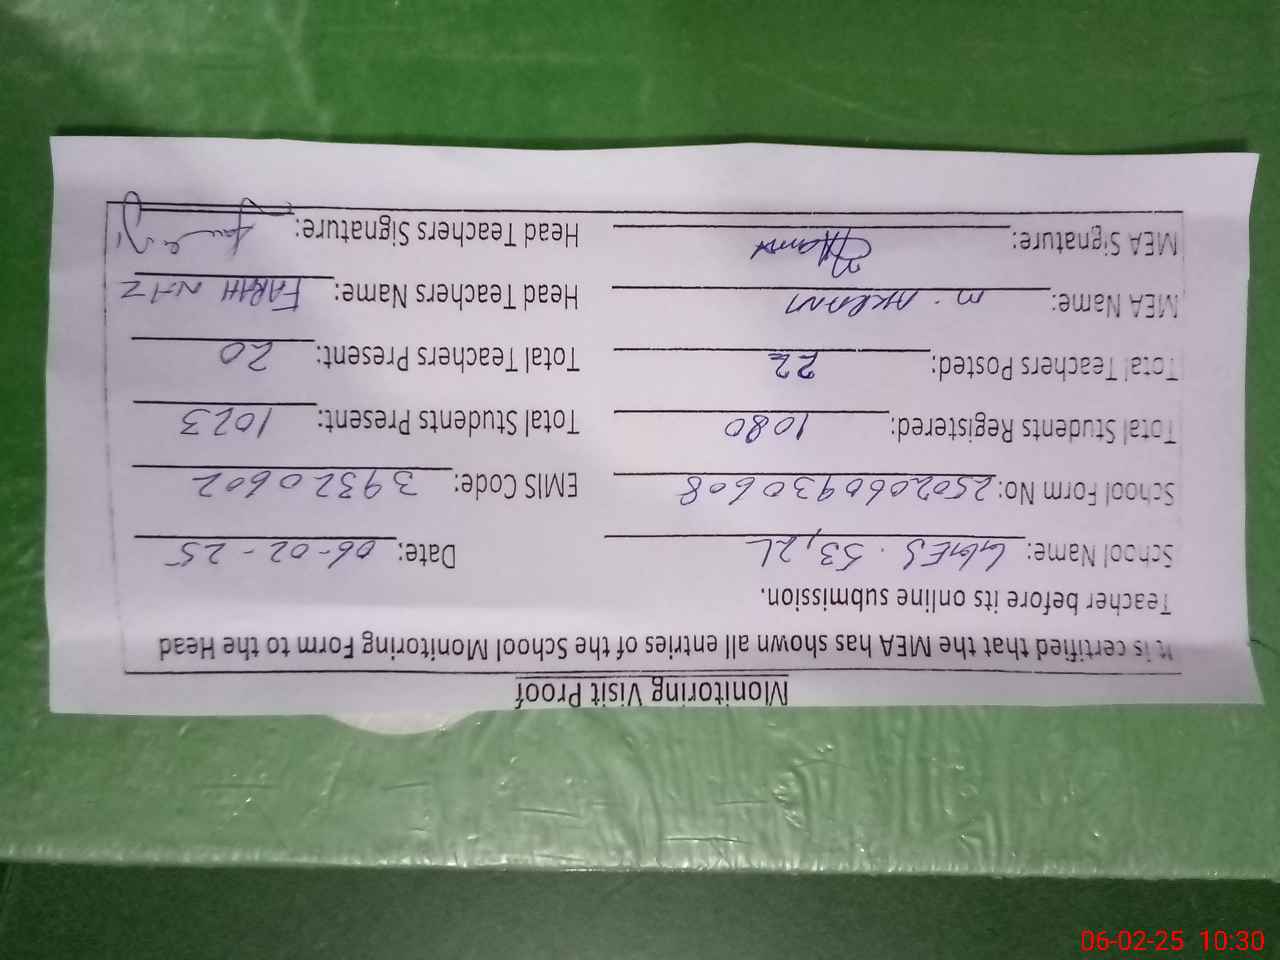 Monitoring Visit Proof
It is certified that the MEA has shown all entries of the School Monitoring Form to the Head
Teacher before its online submission.
School Name: GGES. 53,2L Date: 06-02-25
School Form No: 2502060930608 EMIS Code: 39320602
Total Students Registered: 1080 Total Students Present: 1023
Total Teachers Posted: 22 Total Teachers Present: 20
MEA Name: M. AKRAM Head Teachers Name: FARAH NAZ
MEA Signature: Head Teachers Signature:
06-02-25 10:30